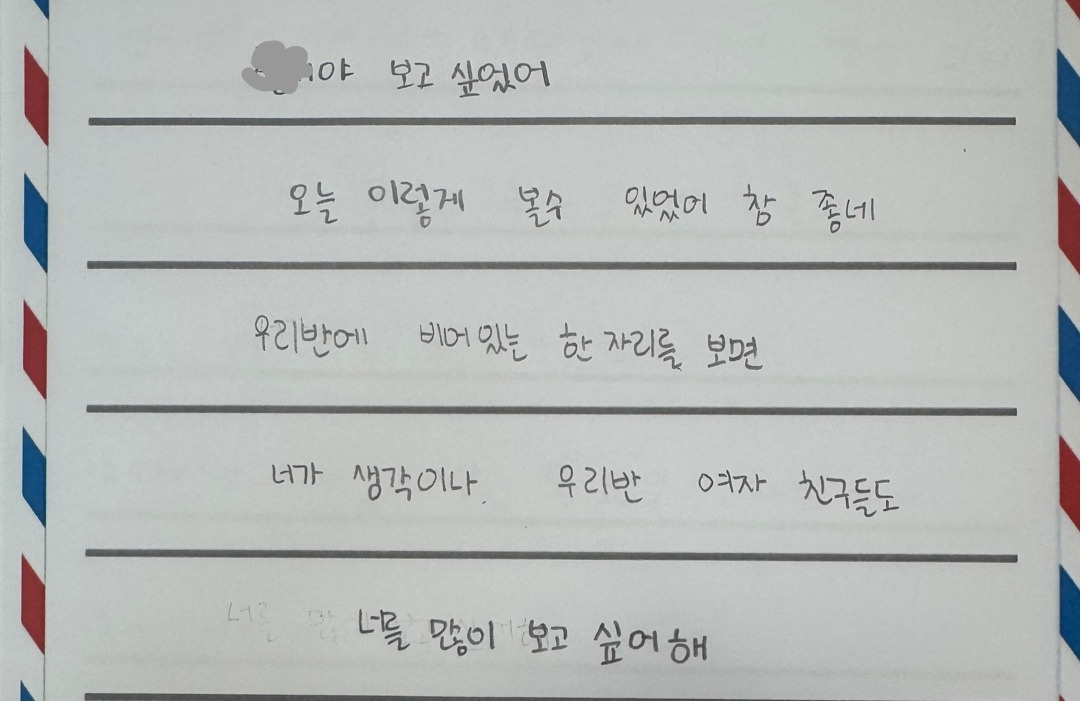 야 보고 싶었어
오늘 이렇게 볼수 있었어 참 좋네
우리반에 비어있는 한 자리를 보면
너가 생각이나. 우리반 여자 친구들도
너를 많이 보고 싶어해